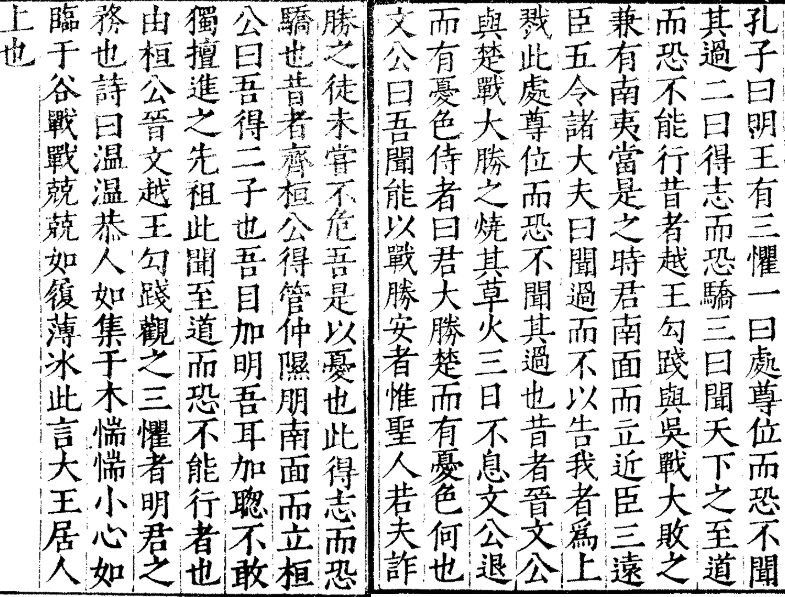 孔子曰明王有三懼一曰處尊位而恐不聞
其過二曰得志而恐驕三曰聞天下之至道
而恐不能行昔者越王勾踐與吳戰大敗之
兼有南夷當是之時君南面而立近臣三遠
臣五令諸大夫曰聞過而不以告我者爲上
戮此處尊位而恐不聞其過也昔者晉文公
與楚戰大勝之燒其草火三日不息文公退
而有憂色侍者曰君大勝楚而有憂色何也
文公曰吾聞能以戰勝安者惟聖人若夫詐
勝之徒未嘗不危吾是以憂也此得志而恐
驕也昔者齊桓公得管仲隰朋南面而立桓
公曰吾得二子也吾目加明吾耳加聰不敢
獨擅進之先祖此聞至道而恐不能行者也
由桓公晉文越王勾踐觀之三懼者明君之
務也詩曰溫溫恭人如集于木惴惴小心如
臨于谷戰戰兢兢如履薄冰此言大王居人
上也